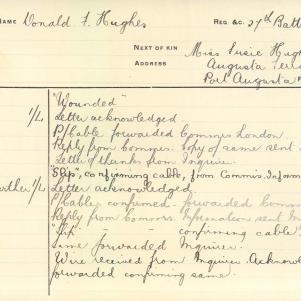 NAME Donald F. Hughes REG. &C. 27th Batt
NEXT OF KIN Miss Susie Hugh
ADDRESS Augusta Terr
Port Augusta
"Wounded"
1/4 Letter acknowledged
P/Cable forwarded Commrs London.
Reply from Commrs. Copy of same sent
Letter of thanks from Inquirer.
"Slip", confirming cable, from Commrs. Inform
1/4 Letter acknowledged.
P/Cable confirmed - forwarded Comm
Reply from Commrs Information sent In
"Slip" - - confirming cable
Same forwarded Inquirer.
Wire received from Inquirer. Acknowl
forwarded confirming same.